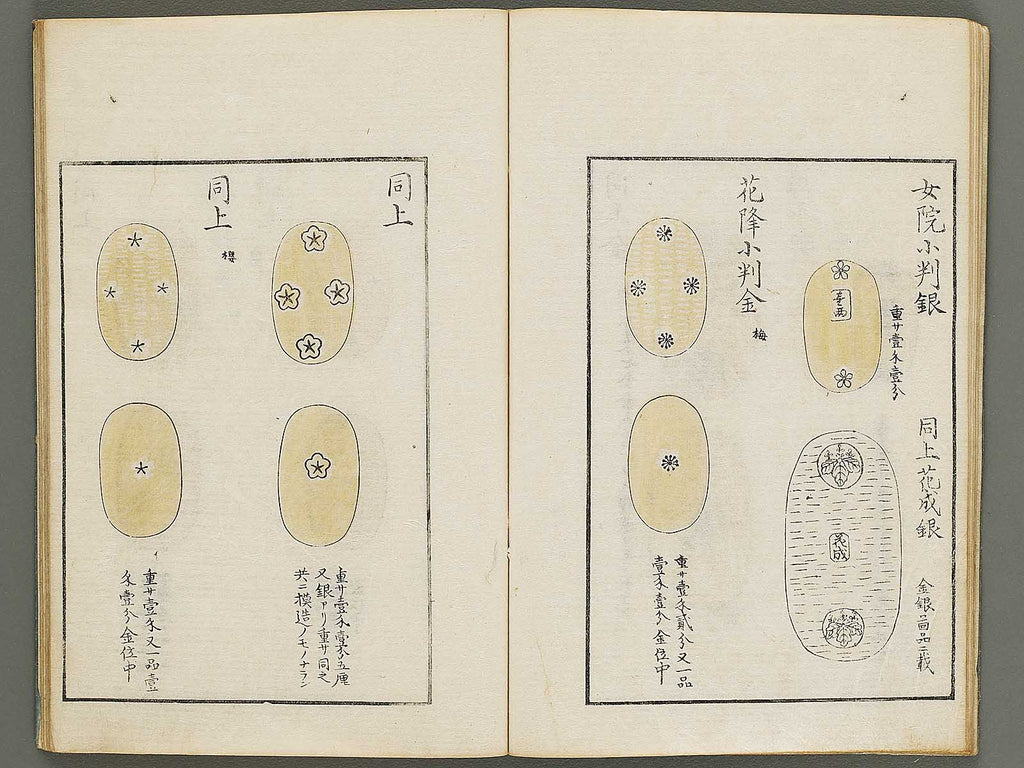 女院小判銀
重サ壹匁壹分
壹両
同上花成銀
花成
金銀図品ニ載
花降小判金
梅
重サ壹匁貳分又一品
壹匁壹分金位中
同上
重サ壹匁壹分五厘
又銀アリ重サ同之
共ニ模造ノモノナラン
同上
櫻
重サ壹匁又一品壹
匁壹分金位中